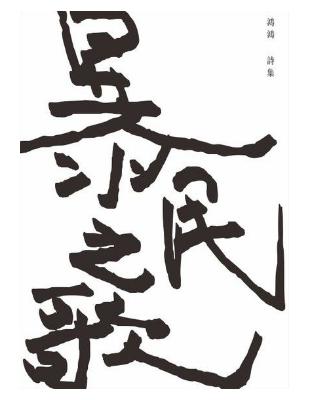 暴民之歌
鴻鴻 詩集